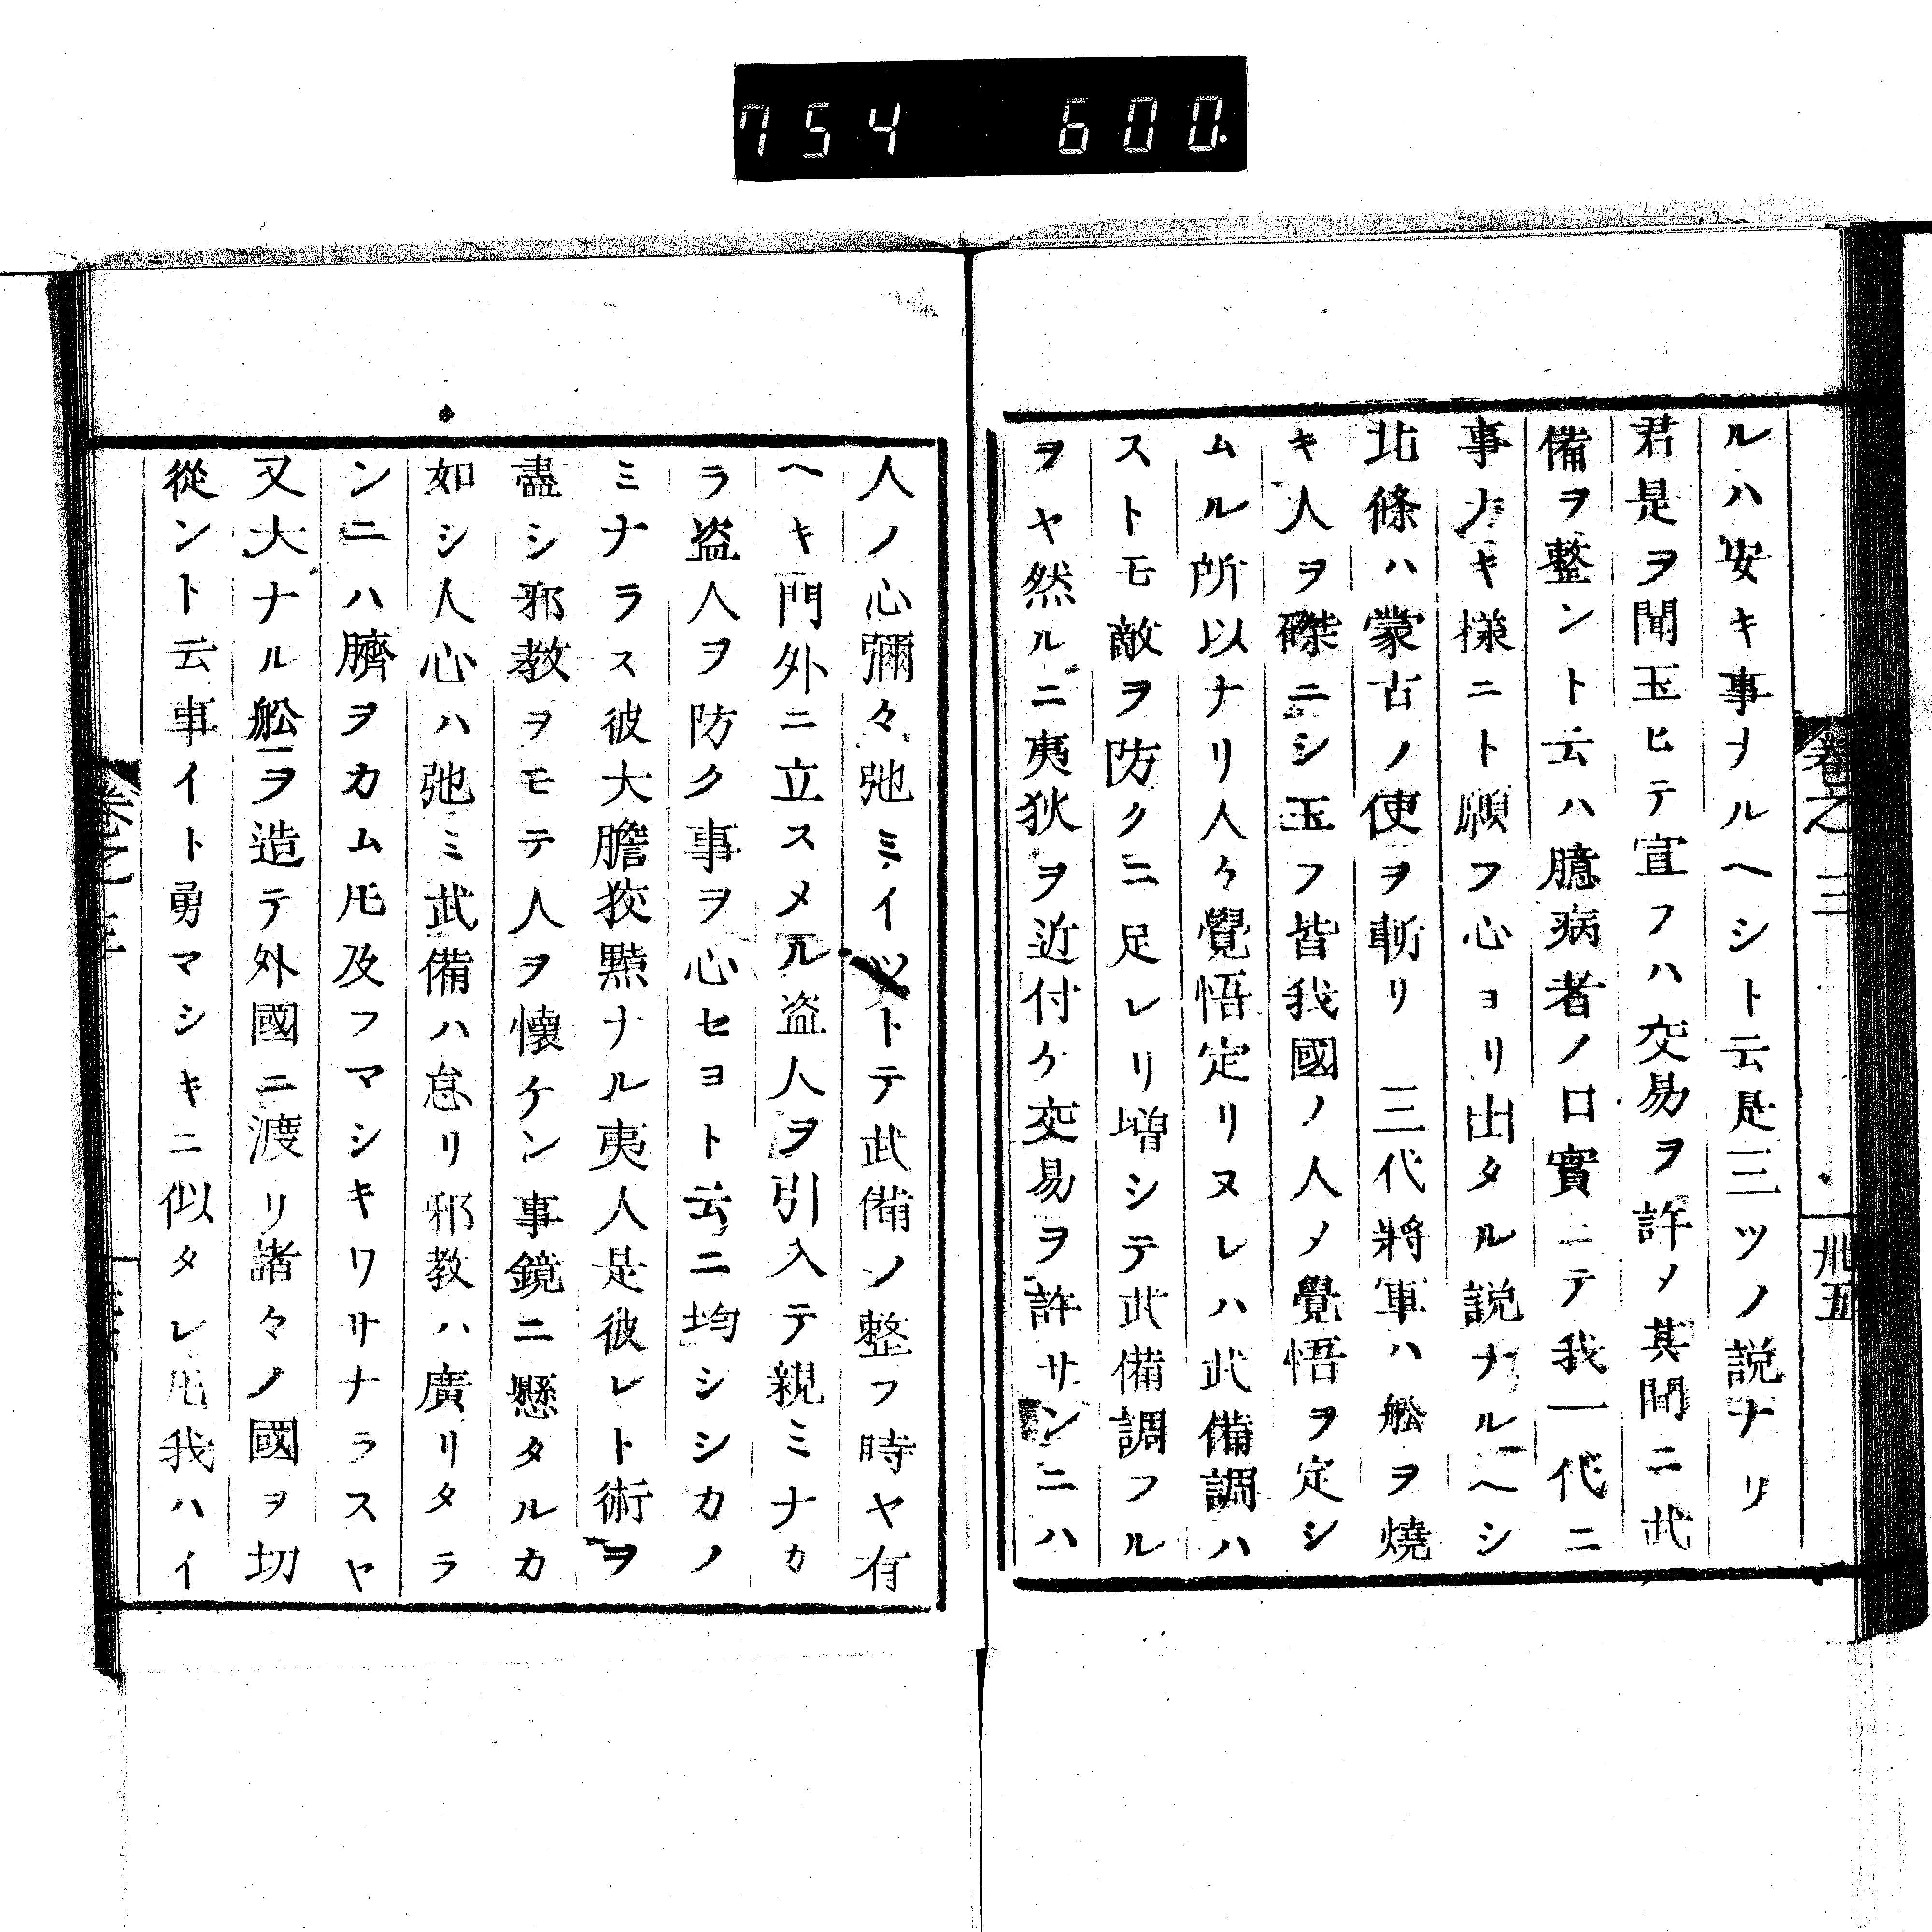 754 600.
卷之三 卅五
ルハ安キ事ナルヘシト云是三ツノ説ナリ
君是ヲ聞玉ヒテ宣フハ交易ヲ許メ其間ニ武
備ヲ整ントト云ハ臆病者ノ口實ニテ我一代ニ
事ナキ様ニト願フ心ヨリ出タル説ナルヘシ
北條ハ蒙古ノ使ヲ斬リ 三代將軍ハ舩ヲ燒
キ人ヲ磔ニシ玉フ皆我國ノ人メ覺悟ヲ定シ
ムル所以ナリ人々覺悟定リヌレハ武備調ハ
ストモ敵ヲ防クニ足レリ増シテ武備調フル
ヲヤ然ルニ夷狄ヲ近付ケ交易ヲ許サンニハ
人ノ心彌々弛ミイツトテ武備ノ整フ時ヤ有
ヘキ門外ニ立スメル盗人ヲ引入テ親ミナカ
ラ盗人ヲ防ク事ヲ心セヨト云ニ均シシカノ
ミナラス彼大膽狡黠ナル夷人是彼レト術ヲ
盡シ邪教ヲモテ人ヲ懐ケン事鏡ニ懸タルカ
如シ人心ハ弛ミ武備ハ怠リ邪教ハ廣リタラ
ンニハ臍ヲカム𪜈及フマシキワサナラスヤ
又大ナル舩ヲ造テ外國ニ渡リ諸々ノ國ヲ切
從ント云事イト勇マシキニ似タレ𪜈我ハイ